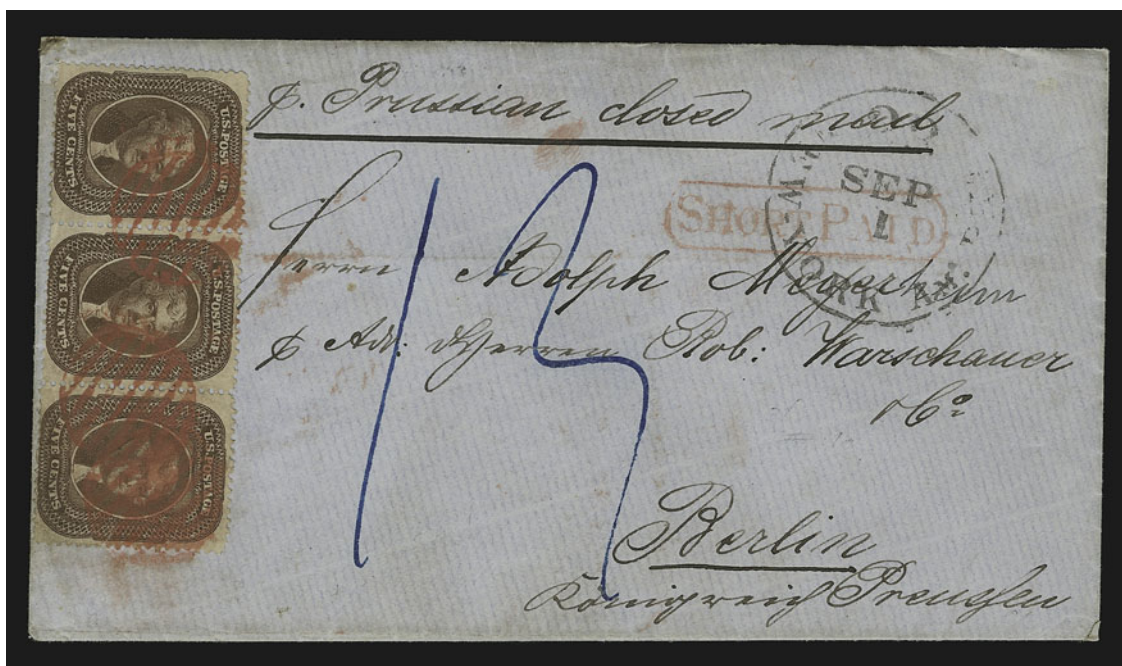 U.S. POSTAGE
FIVE CENTS
U.S. POSTAGE
FIVE CENTS
U.S. POSTAGE
FIVE CENTS
p. Prussian closed mail
SEP
1
YORK AM.
SHORT PAID
13
Herrn Adolph Meyerheim
p Adr: Herren Rob: Warschauer
& Co
Berlin
Königreich Preussen